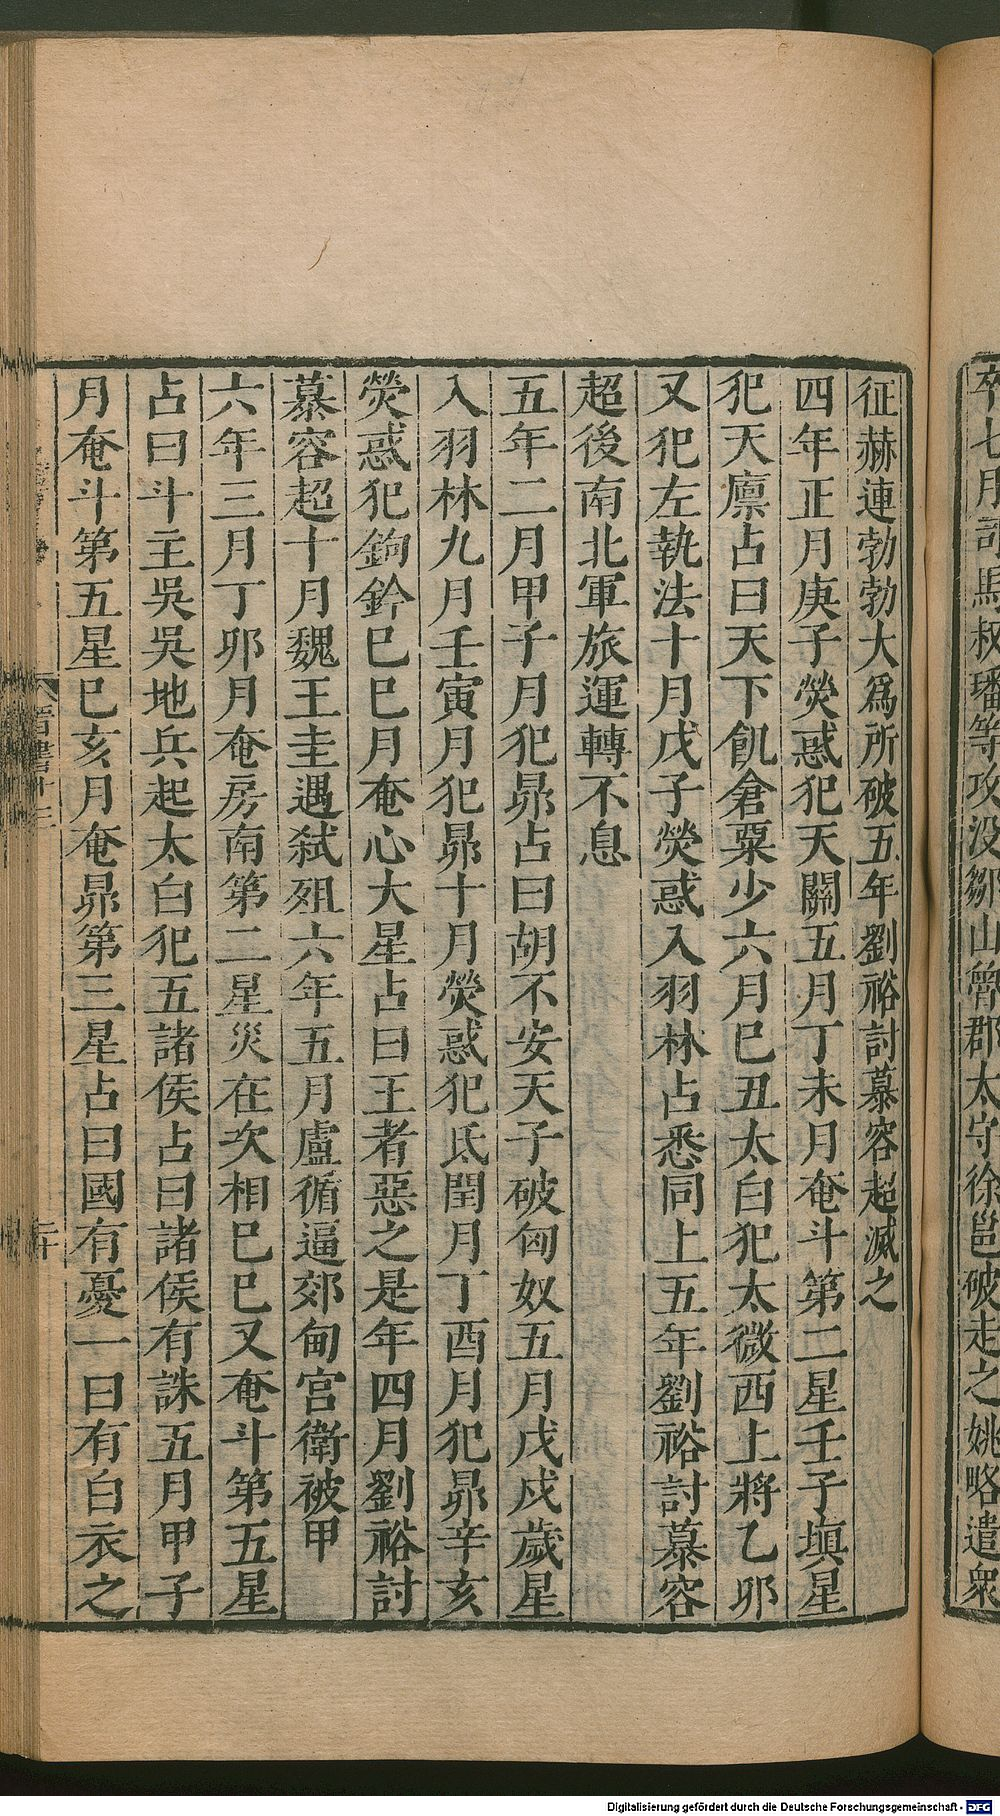 卒七月司馬叔璠等攻没鄒山魯郡太守徐邕破走之姚略遣衆
征赫連勃勃大爲所破五年劉裕討慕容超滅之
四年正月庚子熒惑犯天關五月丁未月奄斗第二星壬子填星
犯天廩占曰天下飢倉粟少六月巳丑太白犯太微西上將乙卯
又犯左執法十月戊子熒惑入羽林占悉同上五年劉裕討慕容
超後南北軍旅運轉不息
五年二月甲子月犯昴占曰胡不安天子破匈奴五月戊戍歲星
入羽林九月壬寅月犯昴十月熒惑犯氐閏月丁酉月犯昴辛亥
熒惑犯鉤鈐巳巳月奄心大星占曰王者惡之是年四月劉裕討
慕容超十月魏王圭遇弑殂六年五月盧循逼郊甸宫衛被甲
六年三月丁卯月奄房南第二星災在次相巳巳又奄斗第五星
占曰斗主吳吳地兵起太白犯五諸侯占曰諸侯有誅五月甲子
月奄斗第五星巳亥月奄昴第三星占曰國有憂一曰有白衣之
晋書十三
二十
Digitalisierung gefördert durch die Deutsche Forschungsgemeinschaft - DFG